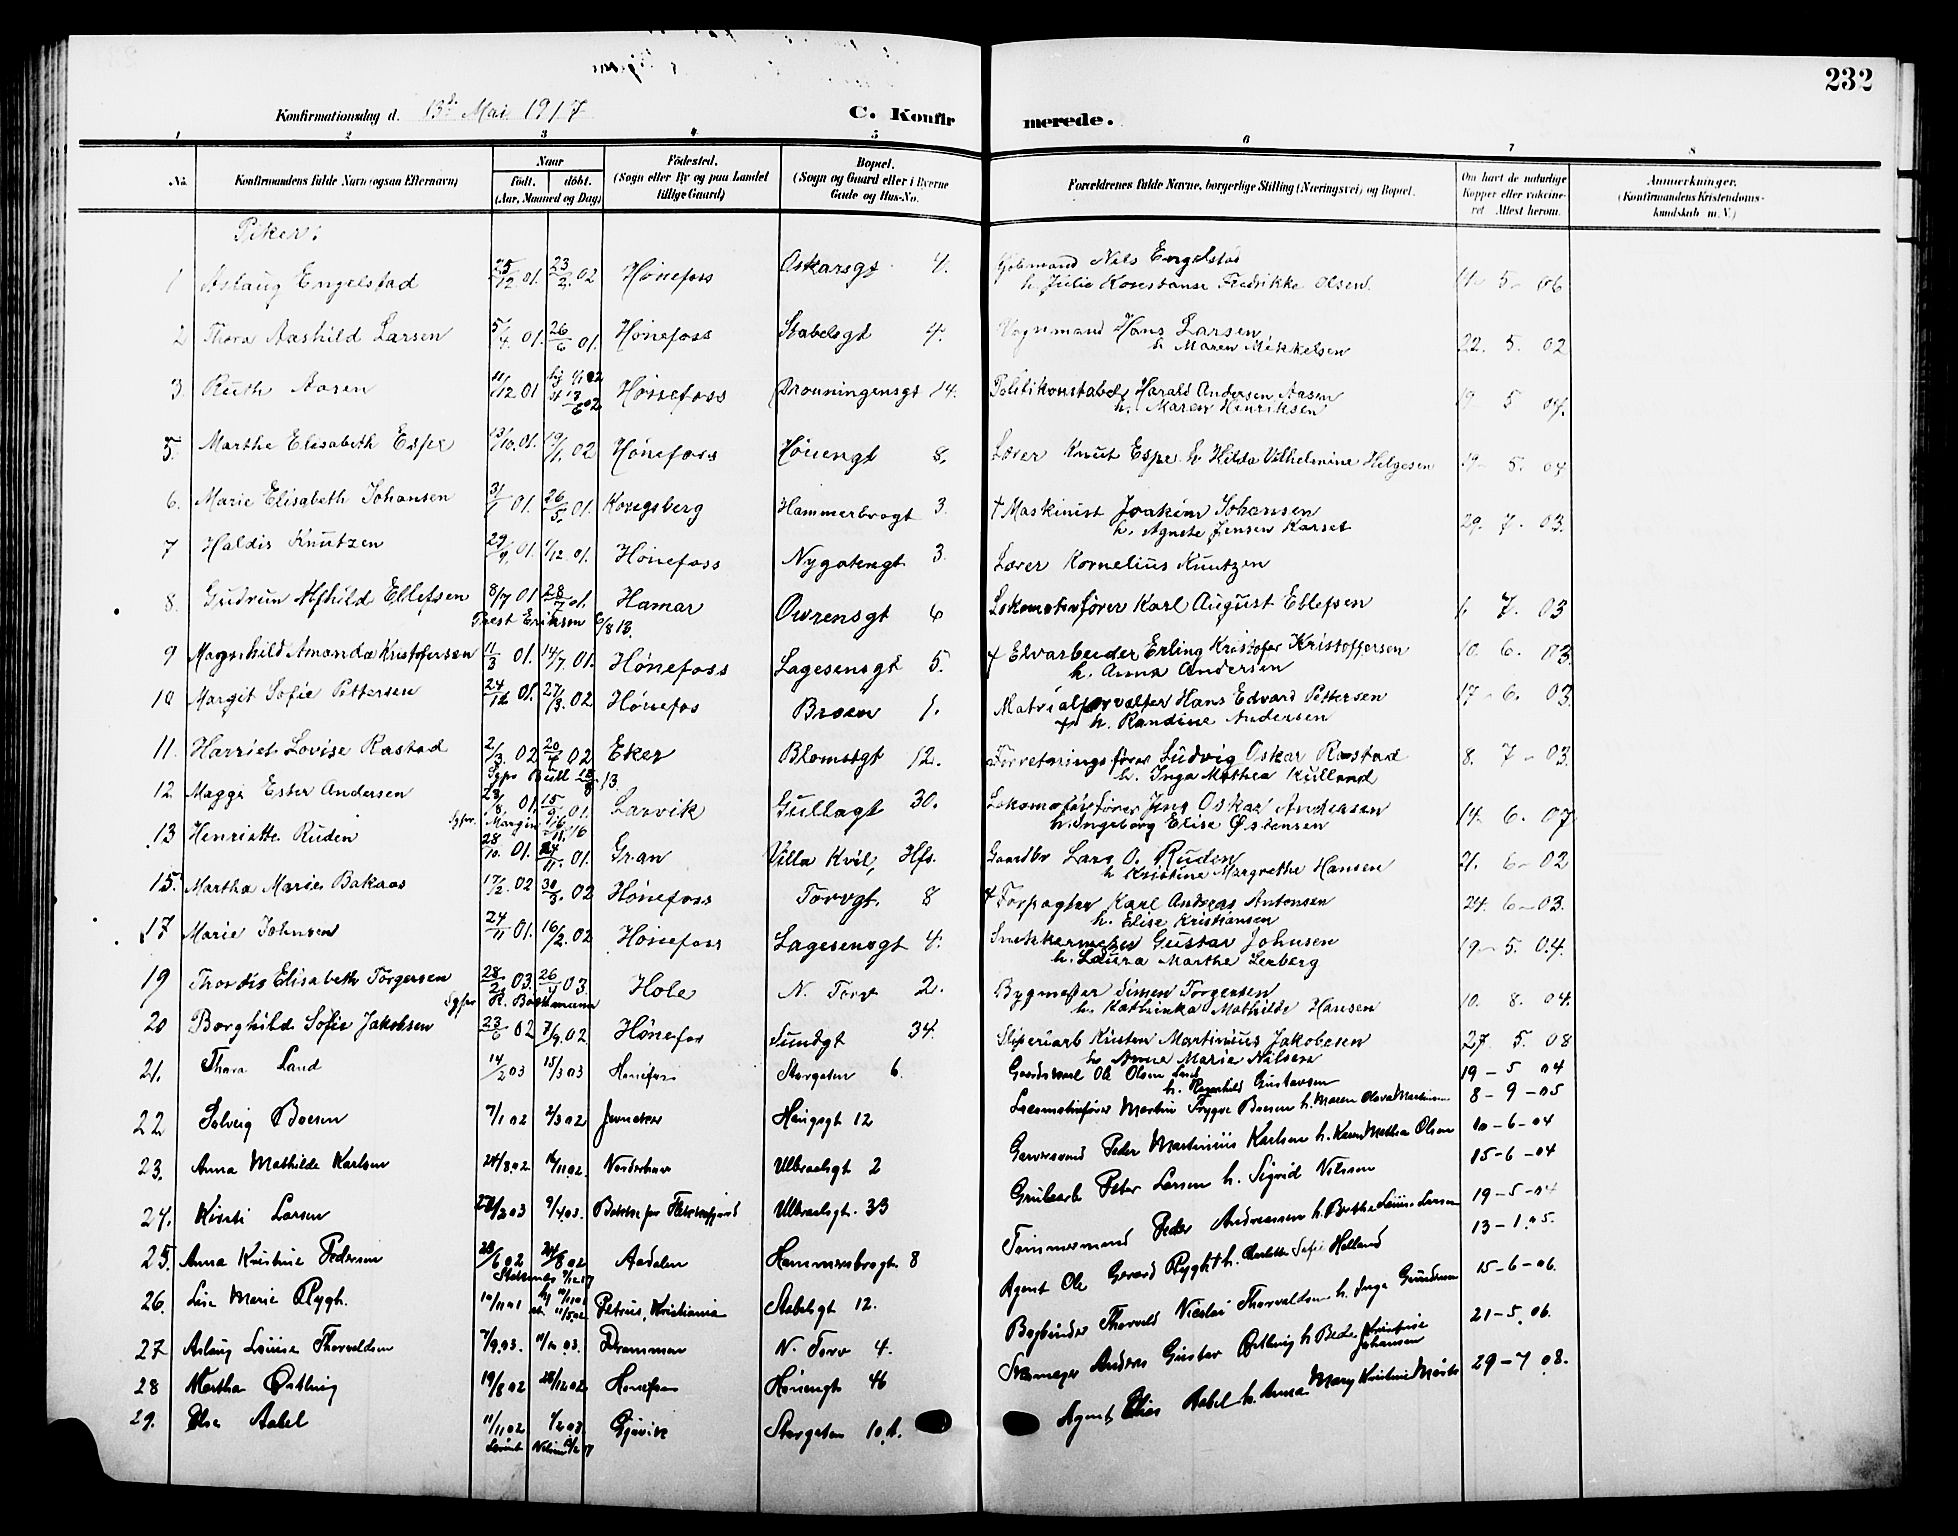 232
Konfirmationsdag d. 13de Mai 1917
C. Konfirmerede.
1 2 3 4 5 6 7 8
No. Konfirmandens fulde Navn (ogsaa Efternavn) Naar født. døbt. (Aar, Maaned og Dag) Fødested. (Sogn eller By og paa Landet tillige Gaard) Bopæl. (Sogn og Gaard eller i Byerne Gade og Hus-No. Forældrenes fulde Navne, borgerlige Stilling (Næringsvei) og Bopæl. Om havt de naturlige Kopper eller vaccineret Attest herom. Anmerkninger. (Konfirmandens Kristendomskundskab m. V.)
Piker:
1 Aslaug Engelstad 25/12 01. 23/2 02 Hønefoss Oskarsgt 4. Nils Engelstad 11. 5. 06
h. Julie Konstanse Fredrikke Olsen.
2 Thora Aashild Larsen 5/4. 01. 26/6 01. Hønefoss Stabelsgt 4. Vognmand Hans Larsen 22. 5. 02
h. Maren Mikkelsen
3. Ruth Aasen 11/12 01 Hønefoss Dronningensgt 14. Politikonstabel Harald Andersen Aasen 19 5 04.
h. Maren Henriksen
5. Marthe Elisabeth Espe 13/10. 01. 19/1. 02 Hønefoss Hønengt 8. Lærer Knut Espe h. Hilda Vilhelmine Helgesen 19- 5. 04
6. Marie Elisabeth Johansen 31/1 01. 26/5. 01. Kongsberg Hammerbrogt 3. † Maskinist Joakim Johansen 29. 7. 03.
h. Agnete Jensen Karset
7 Haldis Knutzen 29/9. 01. 1/12. 01. Hønefoss Nygatengt 3. Lærer Kornelius Knutzen
8. Gudrun Alfhild Ellefsen 8/7 01. 28/7 01. Hamar Owrensgt 6 Lokomotivfører Karl August Ellefsen 1. 7. 03
Prest Eriksen 6/8 13.
9 Magnhild Amanda Kristofersen 11/3 01. 14/7 01. Hønefoss Lagesensgt 5. † Elvarbeider Erling Kristofer Kristoffersen 10. 6. 03.
h. Anna Andersen
10 Margit Sofie Pettersen 24/12 01. 27/3. 02 Hønefos Broen 1. Matrialforvalter Hans Edvard Pettersen 17 - 6. 03.
† h. Randine Andersen
11. Harriet Lovise Rastad 2/3. 02 20/7 02 Eker Blomstgt 12. Forretningsfører Ludvig Oskar Rastad 8. 7 - 03.
h. Inga Mathea Kulland
12. Maggi Ester Andersen 28/8. 01. 15/9 01. Larvik Gullagt 30. Lokomotivfører Jens Oskar Andersen 14. 6. 07
h. Ingeborg Elise Østensen
13 Henriette Ruden 28/10. 01. 24/11. 01. Gran Villa Kvil, Hfs. Gaardbr Lars O. Ruden 21. 6 - 02
h Kristine Margrethe Hansen
15. Martha Marie Bakaas 17/2. 02 30/3. 02 Hønefoss Torvgt. 8 † Forpagter Karl Andreas Antonsen 24. 6 - 03.
h. Elise Kristiansen
17 Marie Johnsen 24/11 01. 16/2. 02 Hønefoss Lagesensgt 4. Snekkermester Gustav Johnsen 19 - 5. 04.
h. Laura Marthe Lerberg
19 Thordis Elisabeth Torgersen 28/2 03. 26/4 03. Hole N. Torv 2. Bygmester Simen Torgersen 10. 8. 04.
h. Kathinka Mathilde Hansen
20 Borghild Sofie Jakobsen 23/6 02 7/9. 02. Hønefos Sundgt 34. Sliperiarb Kristen Martinius Jakobsen 27. 5. 08
h. Anne Marie Nilsen
21. Thora Land 14/2 03 15/3 03 Hønefoss Storgaten 6. Ole Olsen Land 19 - 5 04
h. Ragnhild Gustavsen
22 Solveig Boesen 7/1 02 2/3 02 Jevnaker Haugsgt 12 Locomotivfører Martin Trygve Boesen h. Maren Olava 8 - 9 - 05
23. Anna Mathilde Karlsen 24/8. 02 16/11 02. Norderhov Ulbraalsgt 2 Peder Martinius Karlsen h. Karen Mathea Olsen 10 - 6 - 04
24. Kirsti Larsen 9/4 03. Ulbraalsgt. 33 Grubearb Peter Larsen h. Sigrid Nilssen 15 - 6 - 04
25. Anna Kristine Pedersen 28/6 02 24/8 02 Aadalen Hammersbrogt 8 Tømmermand Peder Andreassen h. Berthe Louise Larsen 19 - 5 - 04
26. Lise Marie Rygh. 10/11 01 Petrus, Kristiania Stabelsgt 12. Agent Ole Gerard Rygh † h. Charlotte Sofie Holland 13 - 1. 05.
27 Aslaug Louise Thorvaldsen 7/9 03. 11/10 03. Drammen N. Torv 4. Bogbinder Thorvald Nicolai Thorvaldsen h. Inga Gundersen 15 - 6 - 06.
28 Martha Østbvig 19/8 02 28/12 02 Hønefoss Hønengt 46 Anders Gustav h. Kristine Johansen 21 - 5. 06.
29. Else Aabel 11/11 02 1/2 03. Gjøvik Storgaten 10. A. Agent Elias Aabel h. Anna Mary Kristine 29 - 7 08.